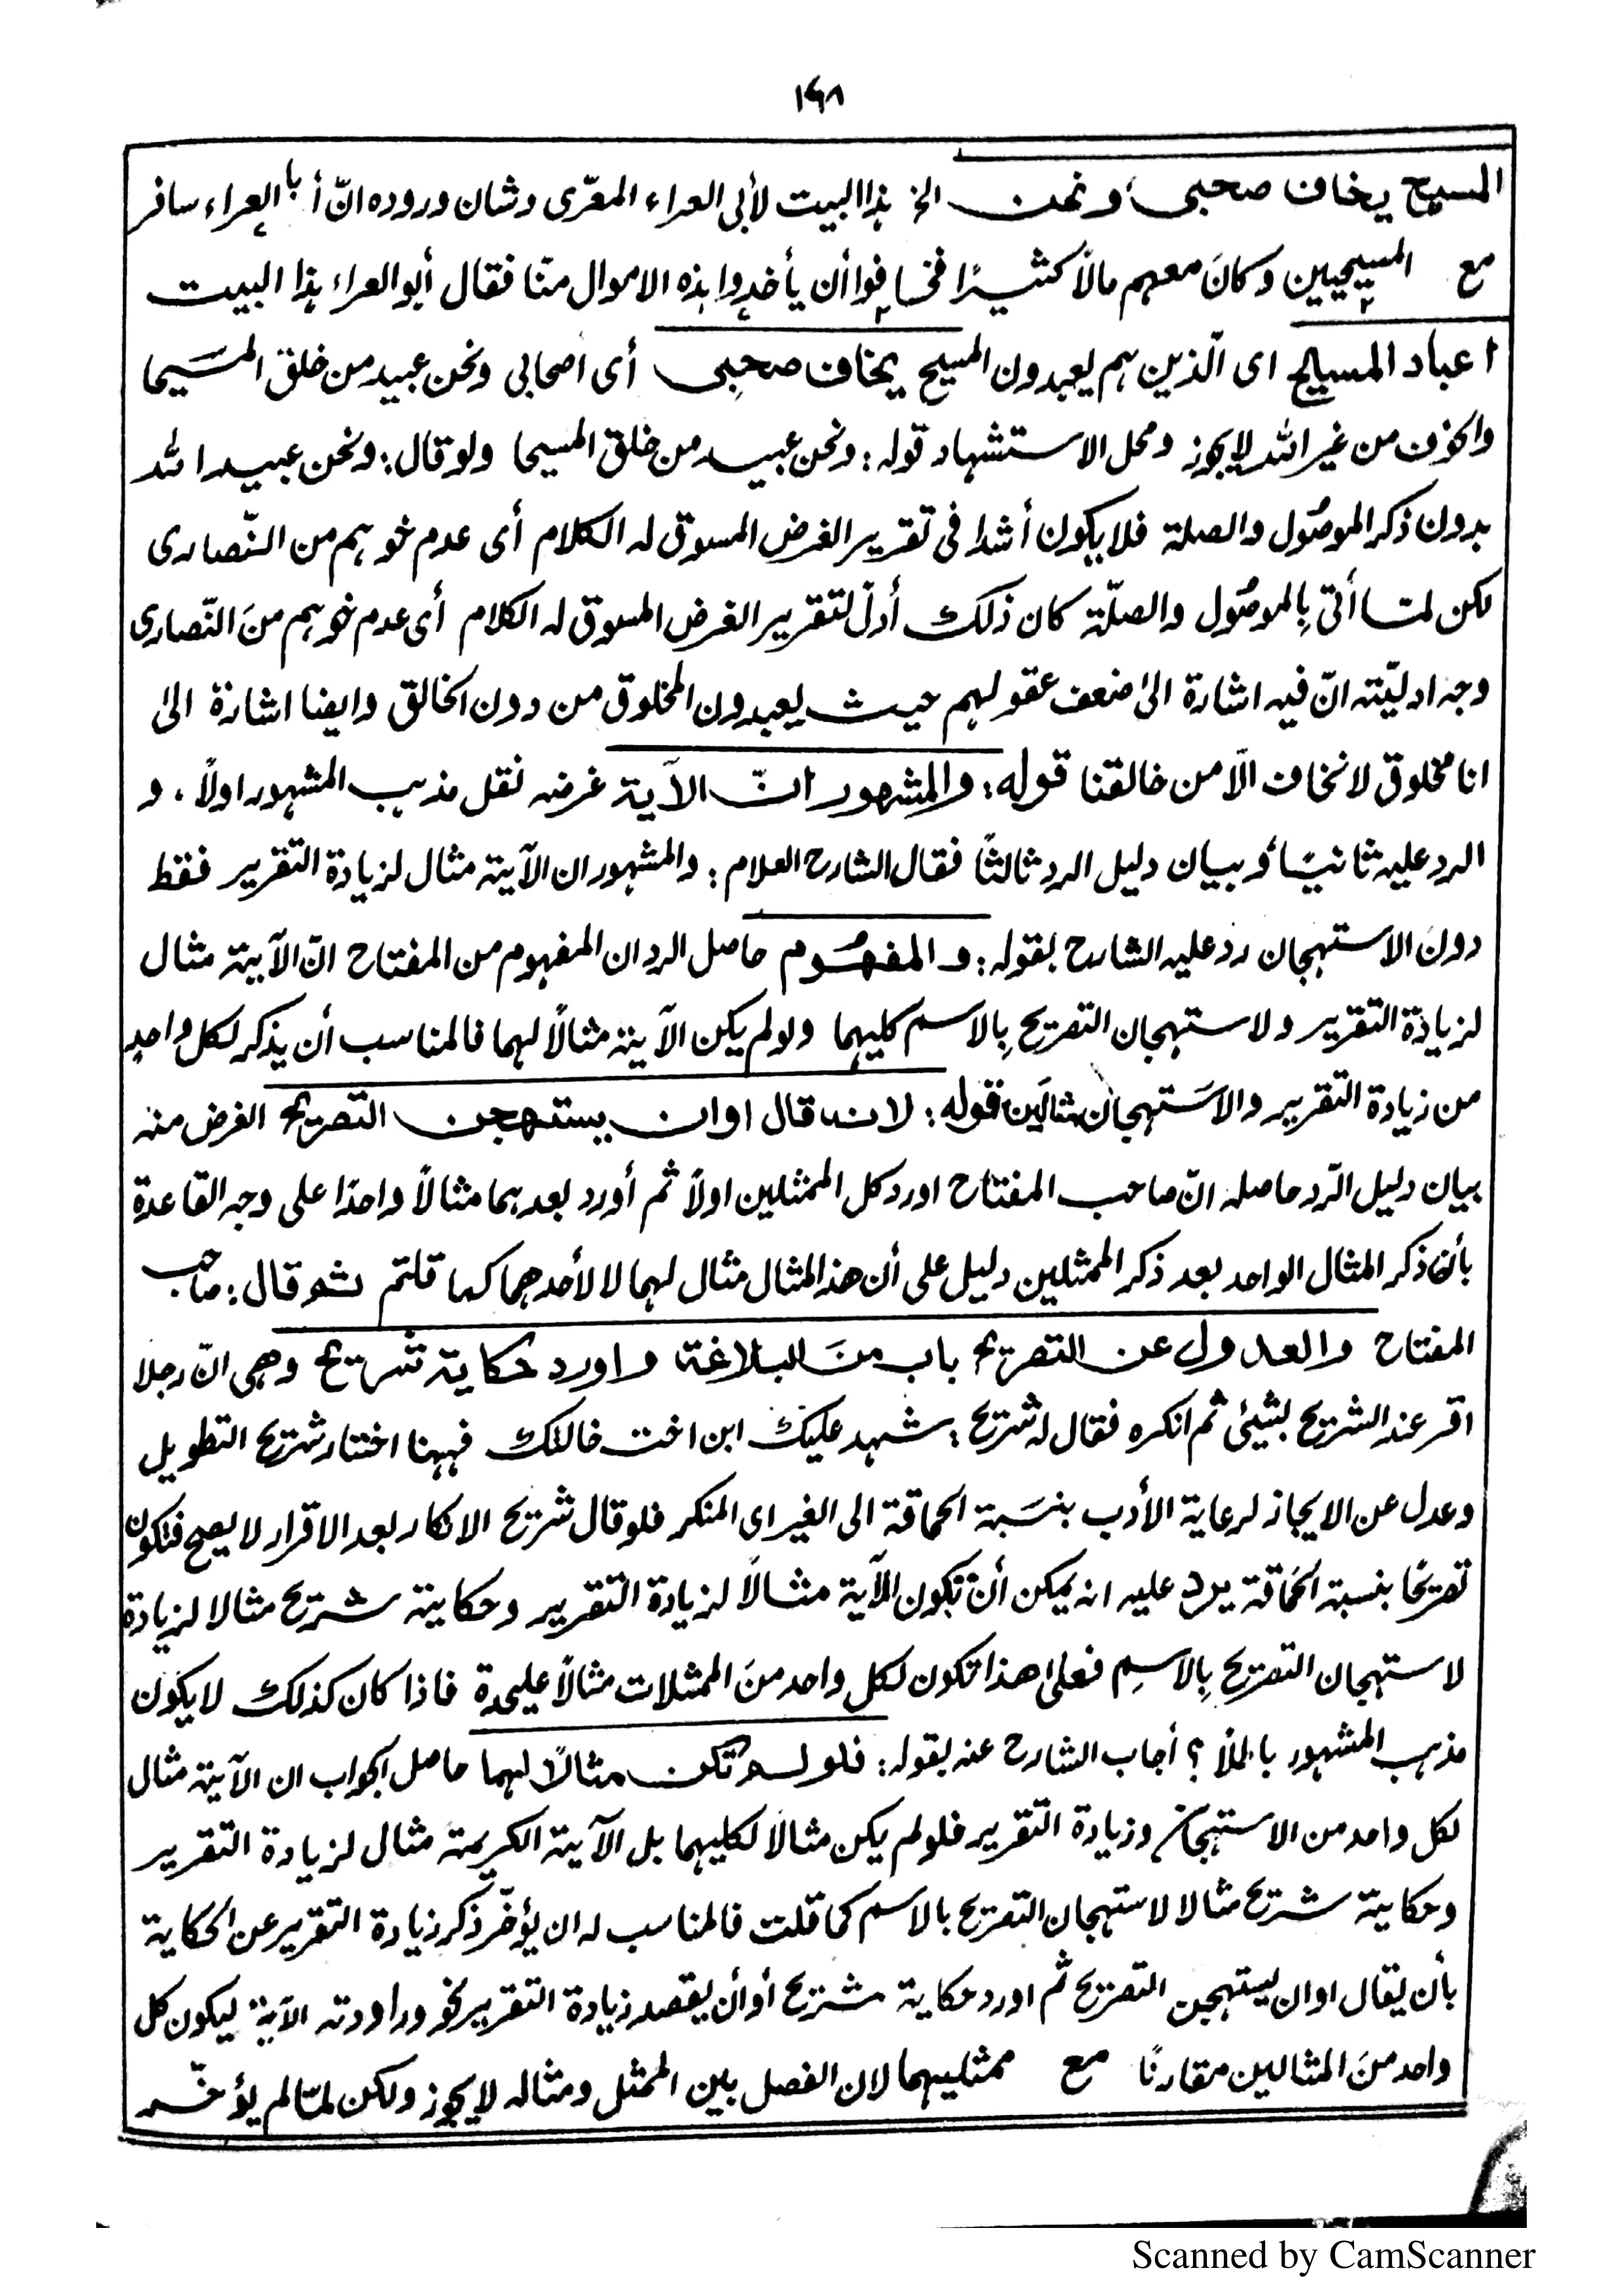 ١٦٨
المسيح يخاف صحبى ونحن الخ هذا البيت لأبى العراء المعرّى وشان وروده انّ أبا العراء سافر
مع المسيحيين وكان معهم مالاً كثيرًا فخافوا أن يأخدوا هذه الاموال منّا فقال أبو العراء هذا البيت
اعباد المسيح اى الّذين هم يعبدون المسيح يخاف صحبِى أى اصحابى ونحن عبيد من خلق المسَيحا
والخوف من غير الله لايجوز ومحل الاستشهاد قوله: ونحن عبيد من خلق المسيحا ولوقال: ونحن عبيد الله
بدون ذكر الموصُول والصلة فلا يكون أشدا فى تقرير الغرض المسوق له الكلام أى عدم خوهم من النّصارى
لكن لمّا أتى بِالموصُول والصلّة كان ذلك أدلّ لتقرير الغرض المسوق له الكلام أى عدم خوهم منَ النّصارى
وجه ادليّته انّ فيه اشارة الىٰ ضعف عقولهم حيث يعبدون المخلوق من دون الخالق وايضا اشارة الىٰ
انا مخلوق لا نخاف الّا من خالقنا قوله: والمشهور انّ الآية غرضه نقل مذهب المشهور اولاً، و
الرد عليه ثانيًا و بيان دليل الرد ثالثًا فقال الشارح العلام: والمشهور ان الآية مثال لزيادة التقرير فقط
دون الاستهجان رد عليه الشارح بقوله: و المفهُوم حاصل الرد ان المفهوم من المفتاح انّ الآية مثال
لزيادة التقرير ولاستهجان التصريح بِالاسم كليهما ولو لم يكن الآية مثالاً لهما فالمناسب أن يذكر لكل واحدٍ
من زيادة التقرير والاسَتهجان مثالَين قوله: لانه قال او ان يستهجن التصريح الغرض منه
بيان دليل الرّد حاصله انّ صاحب المفتاح اورد كل الممثلين اولاً ثم أورد بعدهما مثالاً واحدًا على وجه القاعدة
بأن ذكر المثال الواحد بعد ذكر الممثلين دليل على أن هذ المثال مثال لهما لا لأحدهما كما قلتم ثم قال: صاحب
المفتاح والعدول عن التصريح باب منَ البلاغة واورد حكاية شريح وهى انّ رجلا
اقر عند الشريح بشيئ ثم انكره فقال له شريح: شهد عليك ابن اخت خالتك فههنا اختار شريح التطويل
وعدل عن الايجاز لرعاية الأدب بنسَبة الحماقة الى الغير اى المنكر فلو قال شريح الانكار بعد الاقرار لا يصح فتكون
تصريحًا بنسبة الحَماقة يرد عليه انه يمكن أن تكون الآية مثالاً لزيادة التقرير وحكاية شريح مثالا لزيادة
لاستهجان التصريح بِالاسمِ فعلى هذا تكون لكل واحد منَ الممثلات مثالاً عليحدة فاذا كان كذلك لا يكون
مذهب المشهور باطلاً؟ أجاب الشارح عنه بقوله: فلو لم تكن مثالًا لهما حاصل الجواب ان الآية مثال
لكل واحد من الاستهجان وزيادة التقرير فلو لم يكن مثالا لكليهما بل الآية الكريمة مثال لزيادة التقرير
وحكاية شريح مثالا لاستهجان التصريح بالاسم كما قلت فالمناسب له ان يؤخّر ذكر زيادة التقرير عن الحكاية
بأن يقال او ان يستهجن التصريح ثم اورد حكاية شريح أو أن يقصد زيادة التقرير نحو وراودته الآية ليكون كل
واحد منَ المثالين مقارنًا مع ممثليهما لان الفصل بين الممثل ومثاله لا يجوز ولكن لمّا لم يؤخّر
Scanned by CamScanner